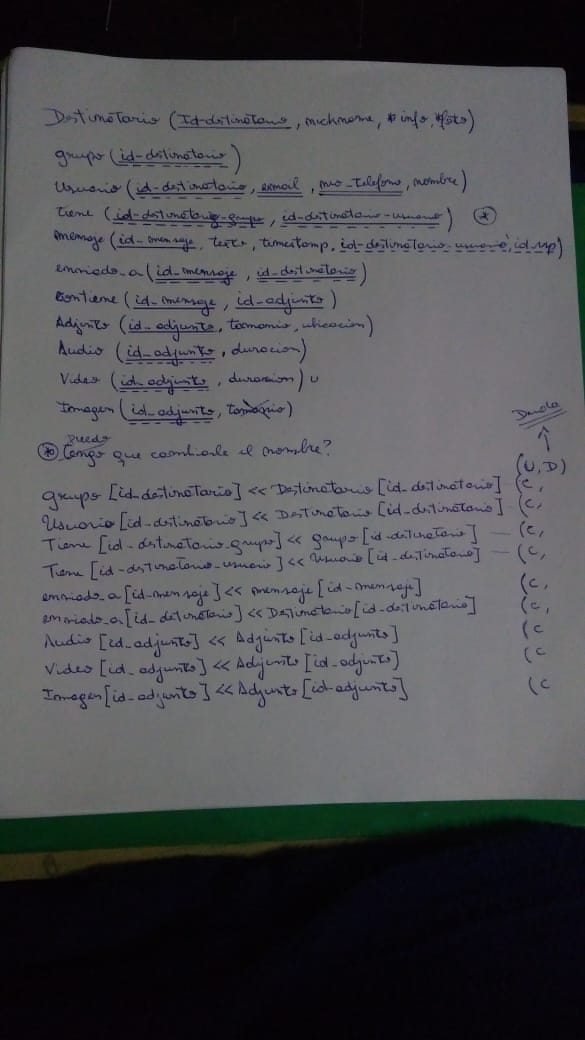 Destinatario (Id-destinatario, nickname, * info, *foto)
grupo (id-destinatario)
Usuario (id-destinatario, email, nro_telefono, nombre)
tiene (id-destinatario-grupo, id-destinatario-usuario) *
mensaje (id_mensaje, texto, timestamp, id-destinatario-usuario,
enviado_a (id_mensaje, id_destinatario)
Contiene (id_mensaje, id_adjunto)
Adjunto (id_adjunto, tamanio, ubicacion)
Audio (id_adjunto, duracion)
Video (id_adjunto, duracion)
Imagen (id_adjunto, tamanio)
Puedo
* tengo que cambiarle el nombre?
Duda
(U, D)
grupo [id-destinatario] << Destinatario [id_destinatario] (C,
Usuario [id-destinatario] << Destinatario [id_destinatario] (C,
Tiene [id-destinatario-grupo] << grupo [id-destinatario] (C,
Tiene [id-destinatario-usuario] << Usuario [id_destinatario] (C,
enviado_a [id-mensaje] << mensaje [id-mensaje] (C,
enviado_a [id_destinatario] << Destinatario [id_destinatario] (C,
Audio [id_adjunto] << Adjunto [id_adjunto] (C
Video [id_adjunto] << Adjunto [id_adjunto] (C
Imagen [id_adjunto] << Adjunto [id-adjunto] (C